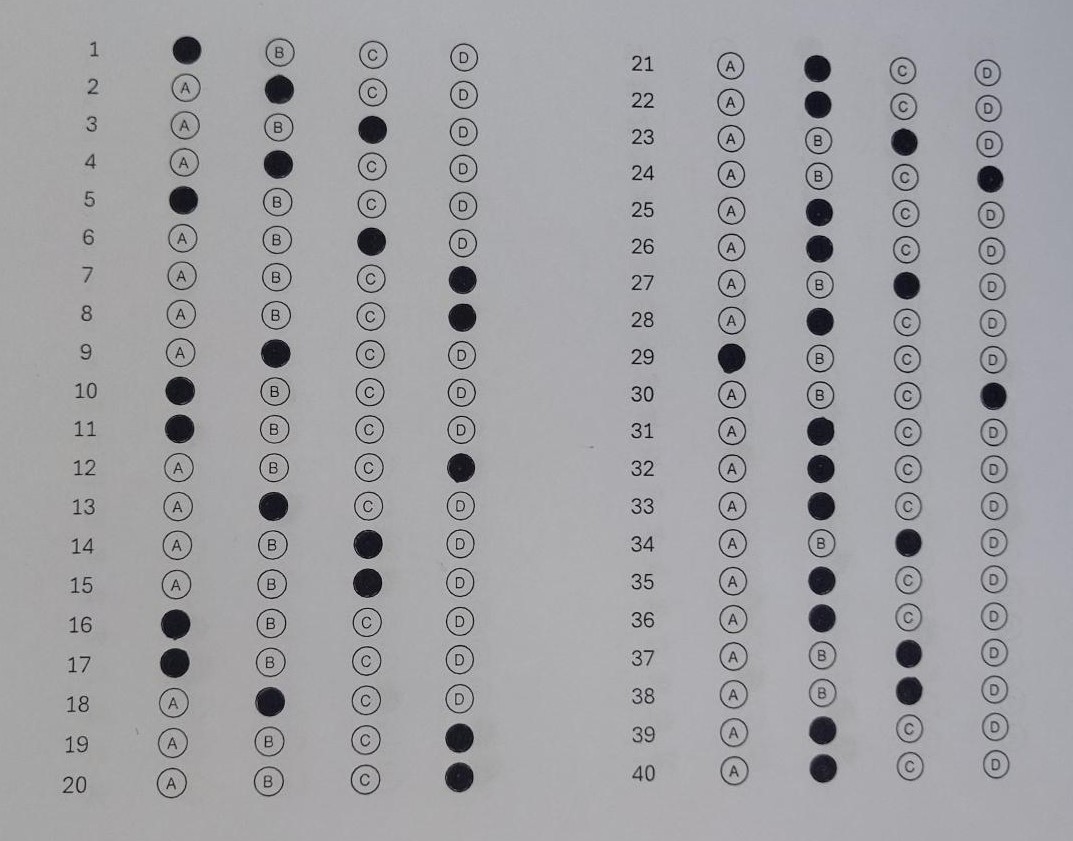 1 B C D
2 A C D
3 A B D
4 A C D
5 B C D
6 A B D
7 A B C
8 A B C
9 A C D
10 B C D
11 B C D
12 A B C
13 A C D
14 A B D
15 A B D
16 B C D
17 B C D
18 A C D
19 A B C
20 A B C
21 A C D
22 A C D
23 A B D
24 A B C
25 A C D
26 A C D
27 A B D
28 A C D
29 B C D
30 A B C
31 A C D
32 A C D
33 A C D
34 A B D
35 A C D
36 A C D
37 A B D
38 A B D
39 A C D
40 A C D